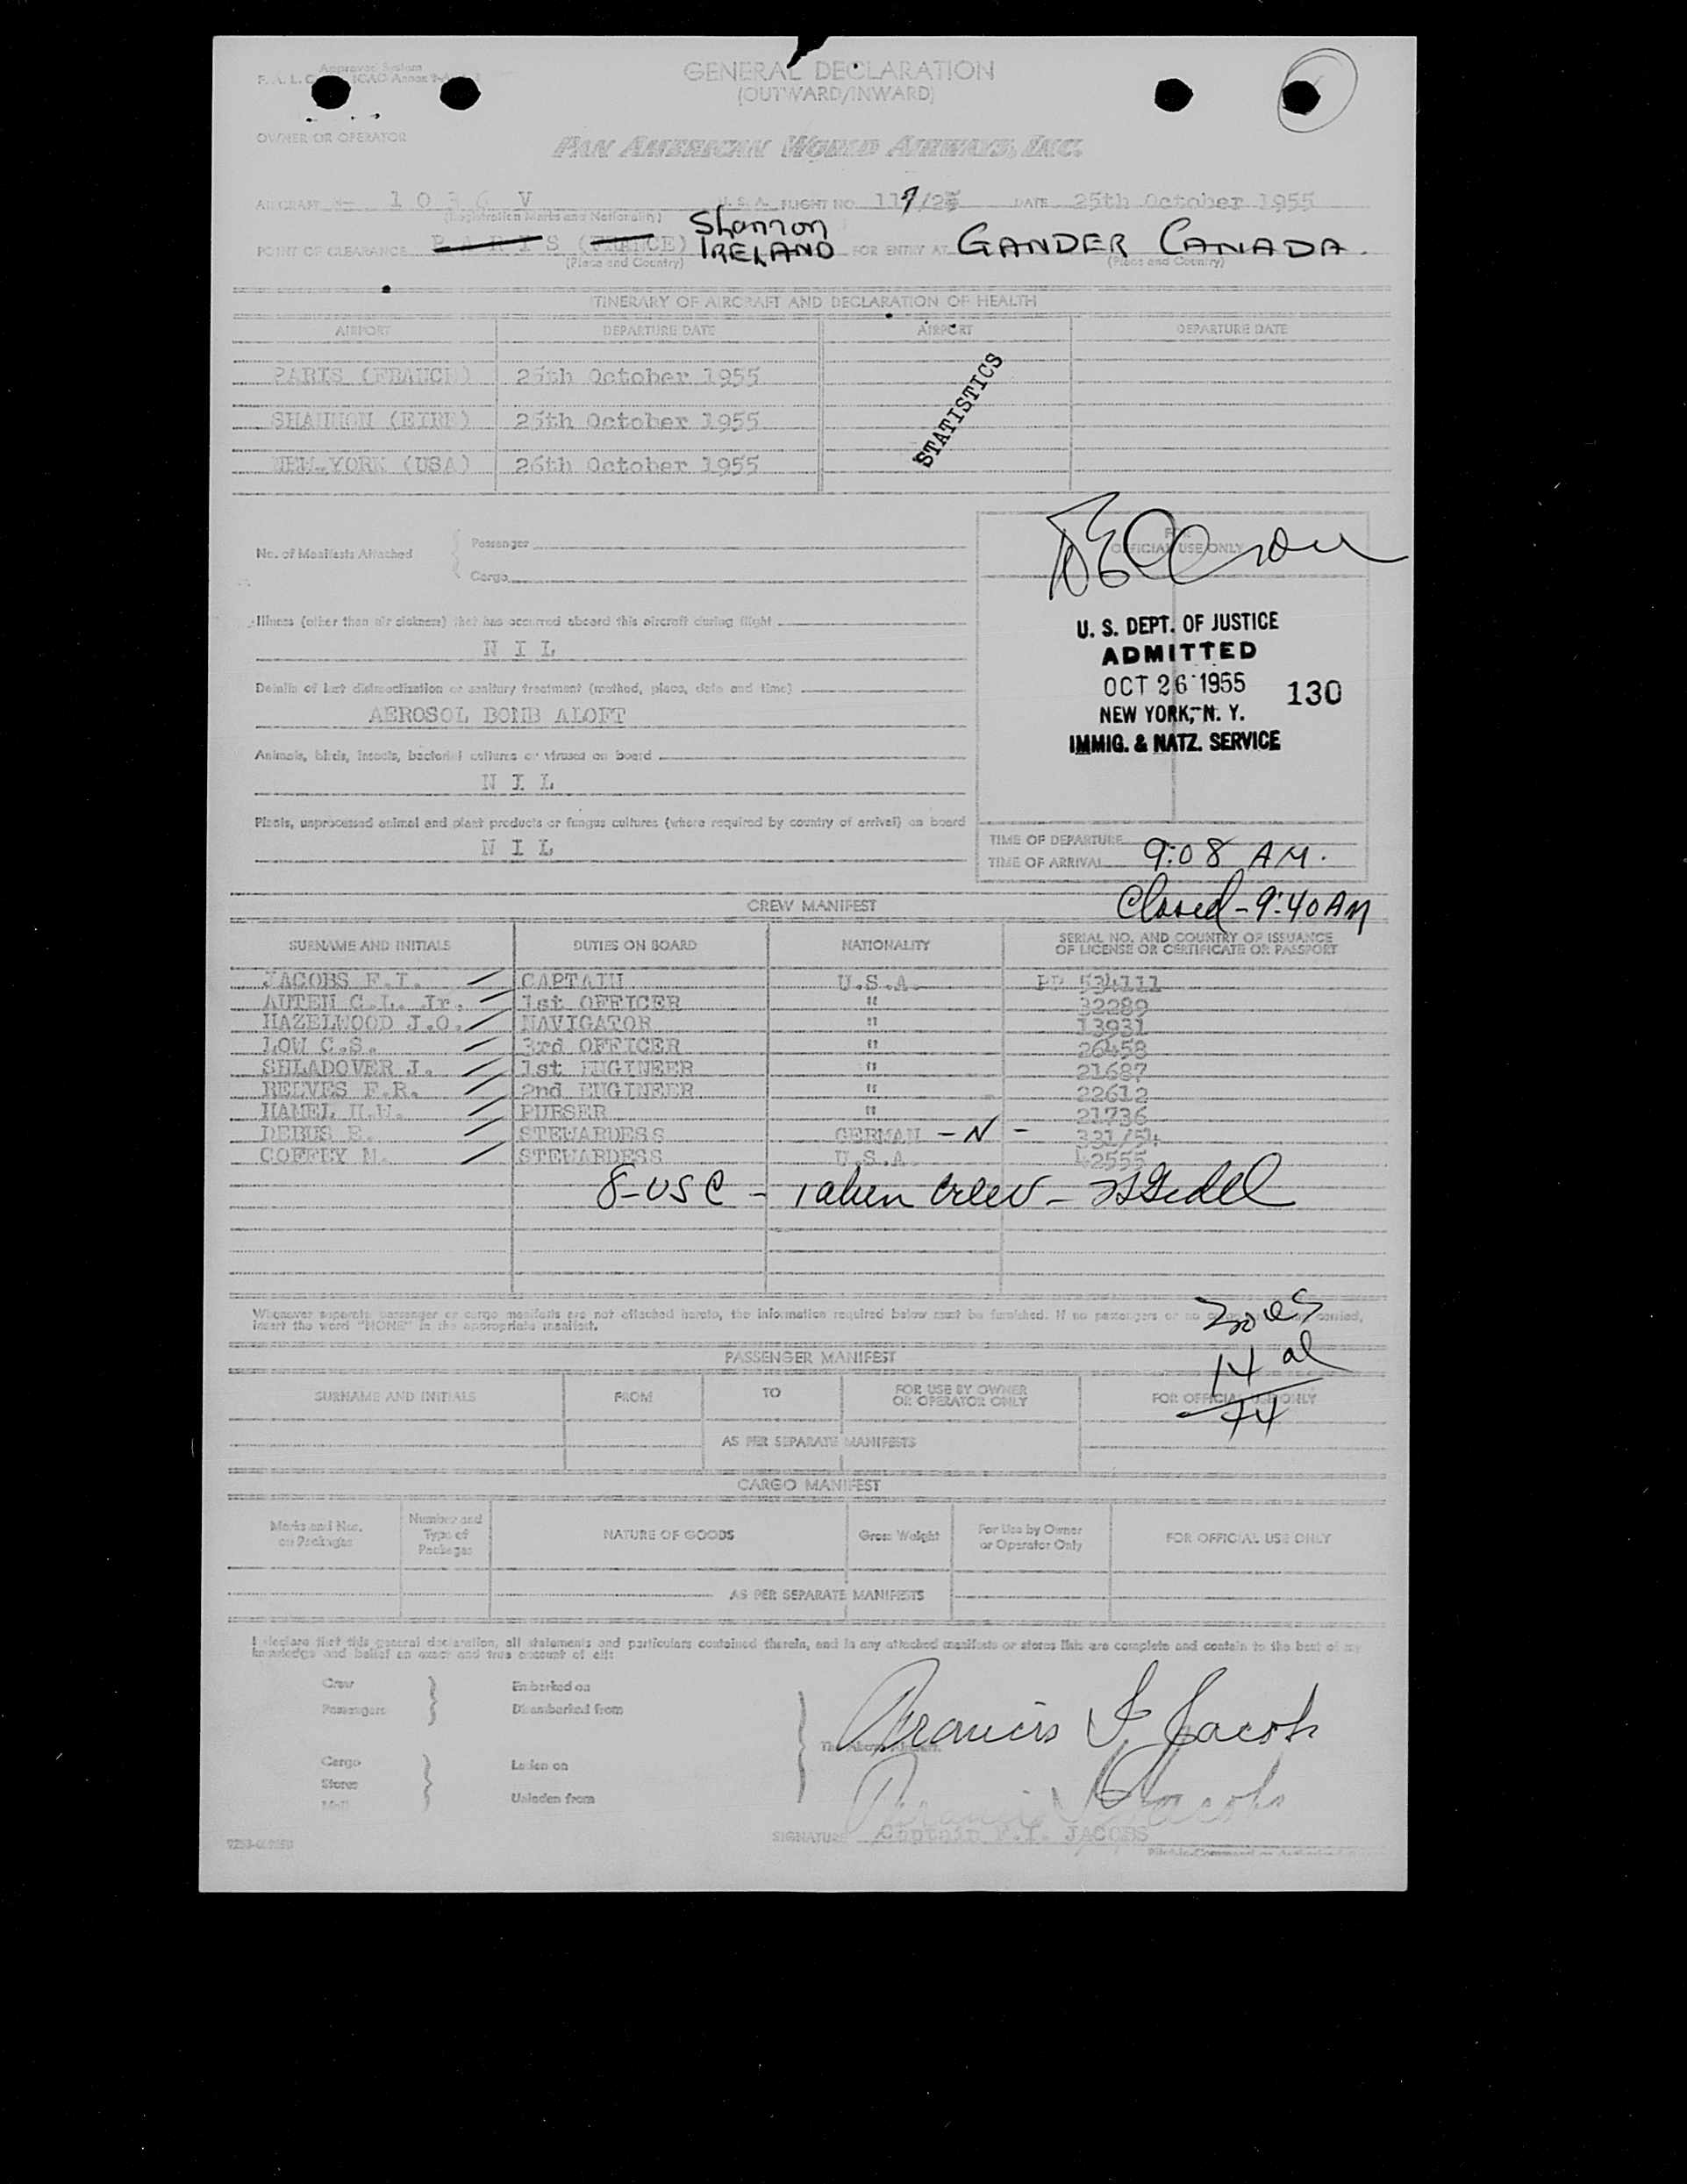 Approved System
GENERAL DECLARATION
(OUTWARD/INWARD)
OWNER OR OPERATOR
PAN AMERICAN WORLD AIRWAYS, INC.
AIRCRAFT N- 1 0 3 6 V U. S. A. FLIGHT NO. DATE 25th October 1955
(Registration Marks and Nationality)
Shannon
POINT OF CLEARANCE P A R I S (FRANCE) IRELAND FOR ENTRY AT GANDER CANADA.
(Place and Country) (Place and Country)
ITINERARY OF AIRCRAFT AND DECLARATION OF HEALTH
AIRPORT DEPARTURE DATE AIRPORT DEPARTURE DATE
PARIS (FRANCE) 25th October 1955
STATISTICS
SHANNON (EIRE) 25th October 1955
NEW-YORK (USA) 26th October 1955
FOR
OFFICIAL USE ONLY
No. of Manifests Attached
Passenger
Cargo
Illness (other than air sickness) that has occurred aboard this aircraft during flight
N I L
Details of last disinsectization or sanitary treatment (method, place, date and time)
AEROSOL BOMB ALOFT
Animals, birds, insects, bacterial cultures or viruses on board
N I L
Plants, unprocessed animal and plant products or fungus cultures (where required by country of arrival) on board
N I L
U. S. DEPT. OF JUSTICE
ADMITTED
OCT 26 1955 130
NEW YORK, N. Y.
IMMIG. & NATZ. SERVICE
TIME OF DEPARTURE
TIME OF ARRIVAL 9:08 AM.
Closed - 9:40 AM
CREW MANIFEST
SURNAME AND INITIALS DUTIES ON BOARD NATIONALITY SERIAL NO. AND COUNTRY OF ISSUANCE
OF LICENSE OR CERTIFICATE OR PASSPORT
JACOBS F.I. CAPTAIN U.S.A. PP 534111
AUTEN C.L. Jr. 1st OFFICER " 32289
HAZELWOOD J.O. NAVIGATOR " 13931
LOW C.S. 3rd OFFICER " 26458
SHLADOVER J. 1st ENGINEER " 21687
REEVES F.R. 2nd ENGINEER " 22612
HAMEL PURSER " 21736
DEBUS E. STEWARDESS GERMAN - N - 331/54
COFFEY M. STEWARDESS U.S.A. 42555
8-USC - Crew -
Whenever separate passenger or cargo manifests are not attached hereto, the information required below must be furnished. If no passengers or no carried,
insert the word "NONE" in the appropriate manifest.
14 al
PASSENGER MANIFEST
SURNAME AND INITIALS FROM TO FOR USE BY OWNER
OR OPERATOR ONLY FOR OFFICIAL USE ONLY
AS PER SEPARATE MANIFESTS
CARGO MANIFEST
Marks and Nos.
on Packages Number and
Type of
Packages NATURE OF GOODS Gross Weight For Use by Owner
or Operator Only FOR OFFICIAL USE ONLY
AS PER SEPARATE MANIFESTS
I declare that this general declaration, all statements and particulars contained therein, and in any attached manifests or stores lists are complete and contain to the best of my
knowledge and belief an exact and true account of all:
Crew Embarked on
Passengers Disembarked from
Francis I Jacobs
The Above Aircraft.
Cargo Laden on
Stores
Mail Unladen from
Francis I Jacobs
SIGNATURE Captain F.I. JACOBS